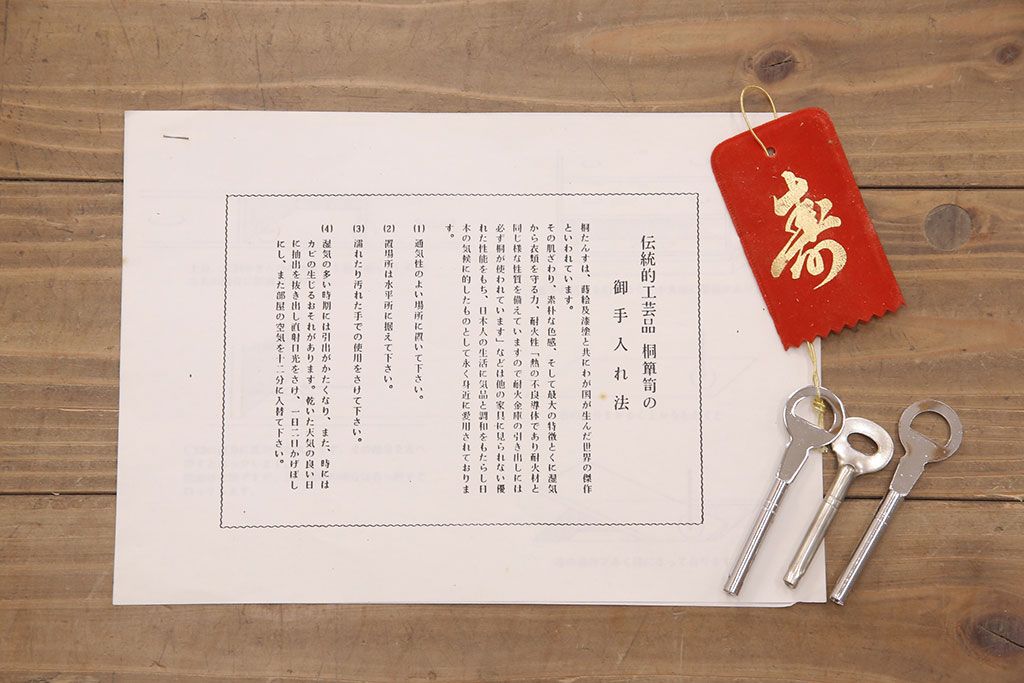 伝統的工芸品 桐簞笥の
御手入れ法
桐たんすは、蒔絵及漆塗と共にわが国が生んだ世界の傑作
といわれています。
その肌ざわり、素朴な色感、そして最大の特徴とくに湿気
から衣類を守る力、耐火性「熱の不良導体であり耐火材と
同じ様な性質を備えていますので耐火金庫の引き出しには
必ず桐が使われています」などは他の家具に見られない優
れた性能をもち、日本人の生活に気品と調和をもたらし日
本の気候に的したものとして永く身近に愛用されておりま
す。
(1) 通気性のよい場所に置いて下さい。
(2) 置場所は水平所に据えて下さい。
(3) 濡れたり汚れた手での使用をさけて下さい。
(4) 湿気の多い時期には引出がかたくなり、また、時には
カビの生じるおそれがあります。乾いた天気の良い日
に抽出を抜き出し直射日光をさけ、一日二日かげぼし
にし、また部屋の空気を十二分に入替て下さい。
寿